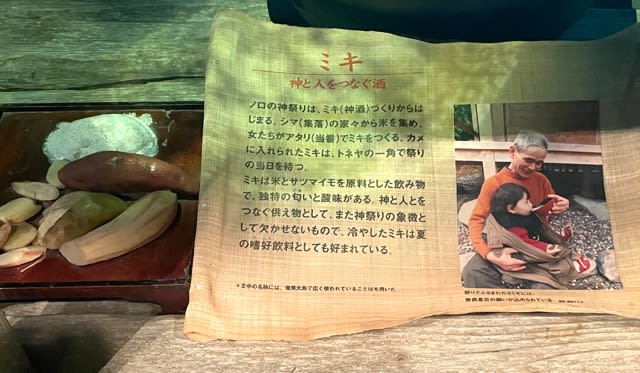 ミキ
神と人をつなぐ酒
ノロの神祭りは、ミキ(神酒)づくりからは
じまる。シマ(集落)の家々から米を集め、
女たちがアタリ(当番)でミキをつくる。カメ
に入れられたミキは、トネヤの一角で祭り
の当日を待つ。
ミキは米とサツマイモを原料とした飲み物
で、独特の匂いと酸味がある。神と人とを
つなぐ供え物として、また神祭りの象徴と
して欠かせないもので、冷やしたミキは夏
の嗜好飲料としても好まれている。
*文中の名称には、奄美大島で広く使われていることばを用いた
祭りでふるまわれるミキには、
無病息災の願いが込められている